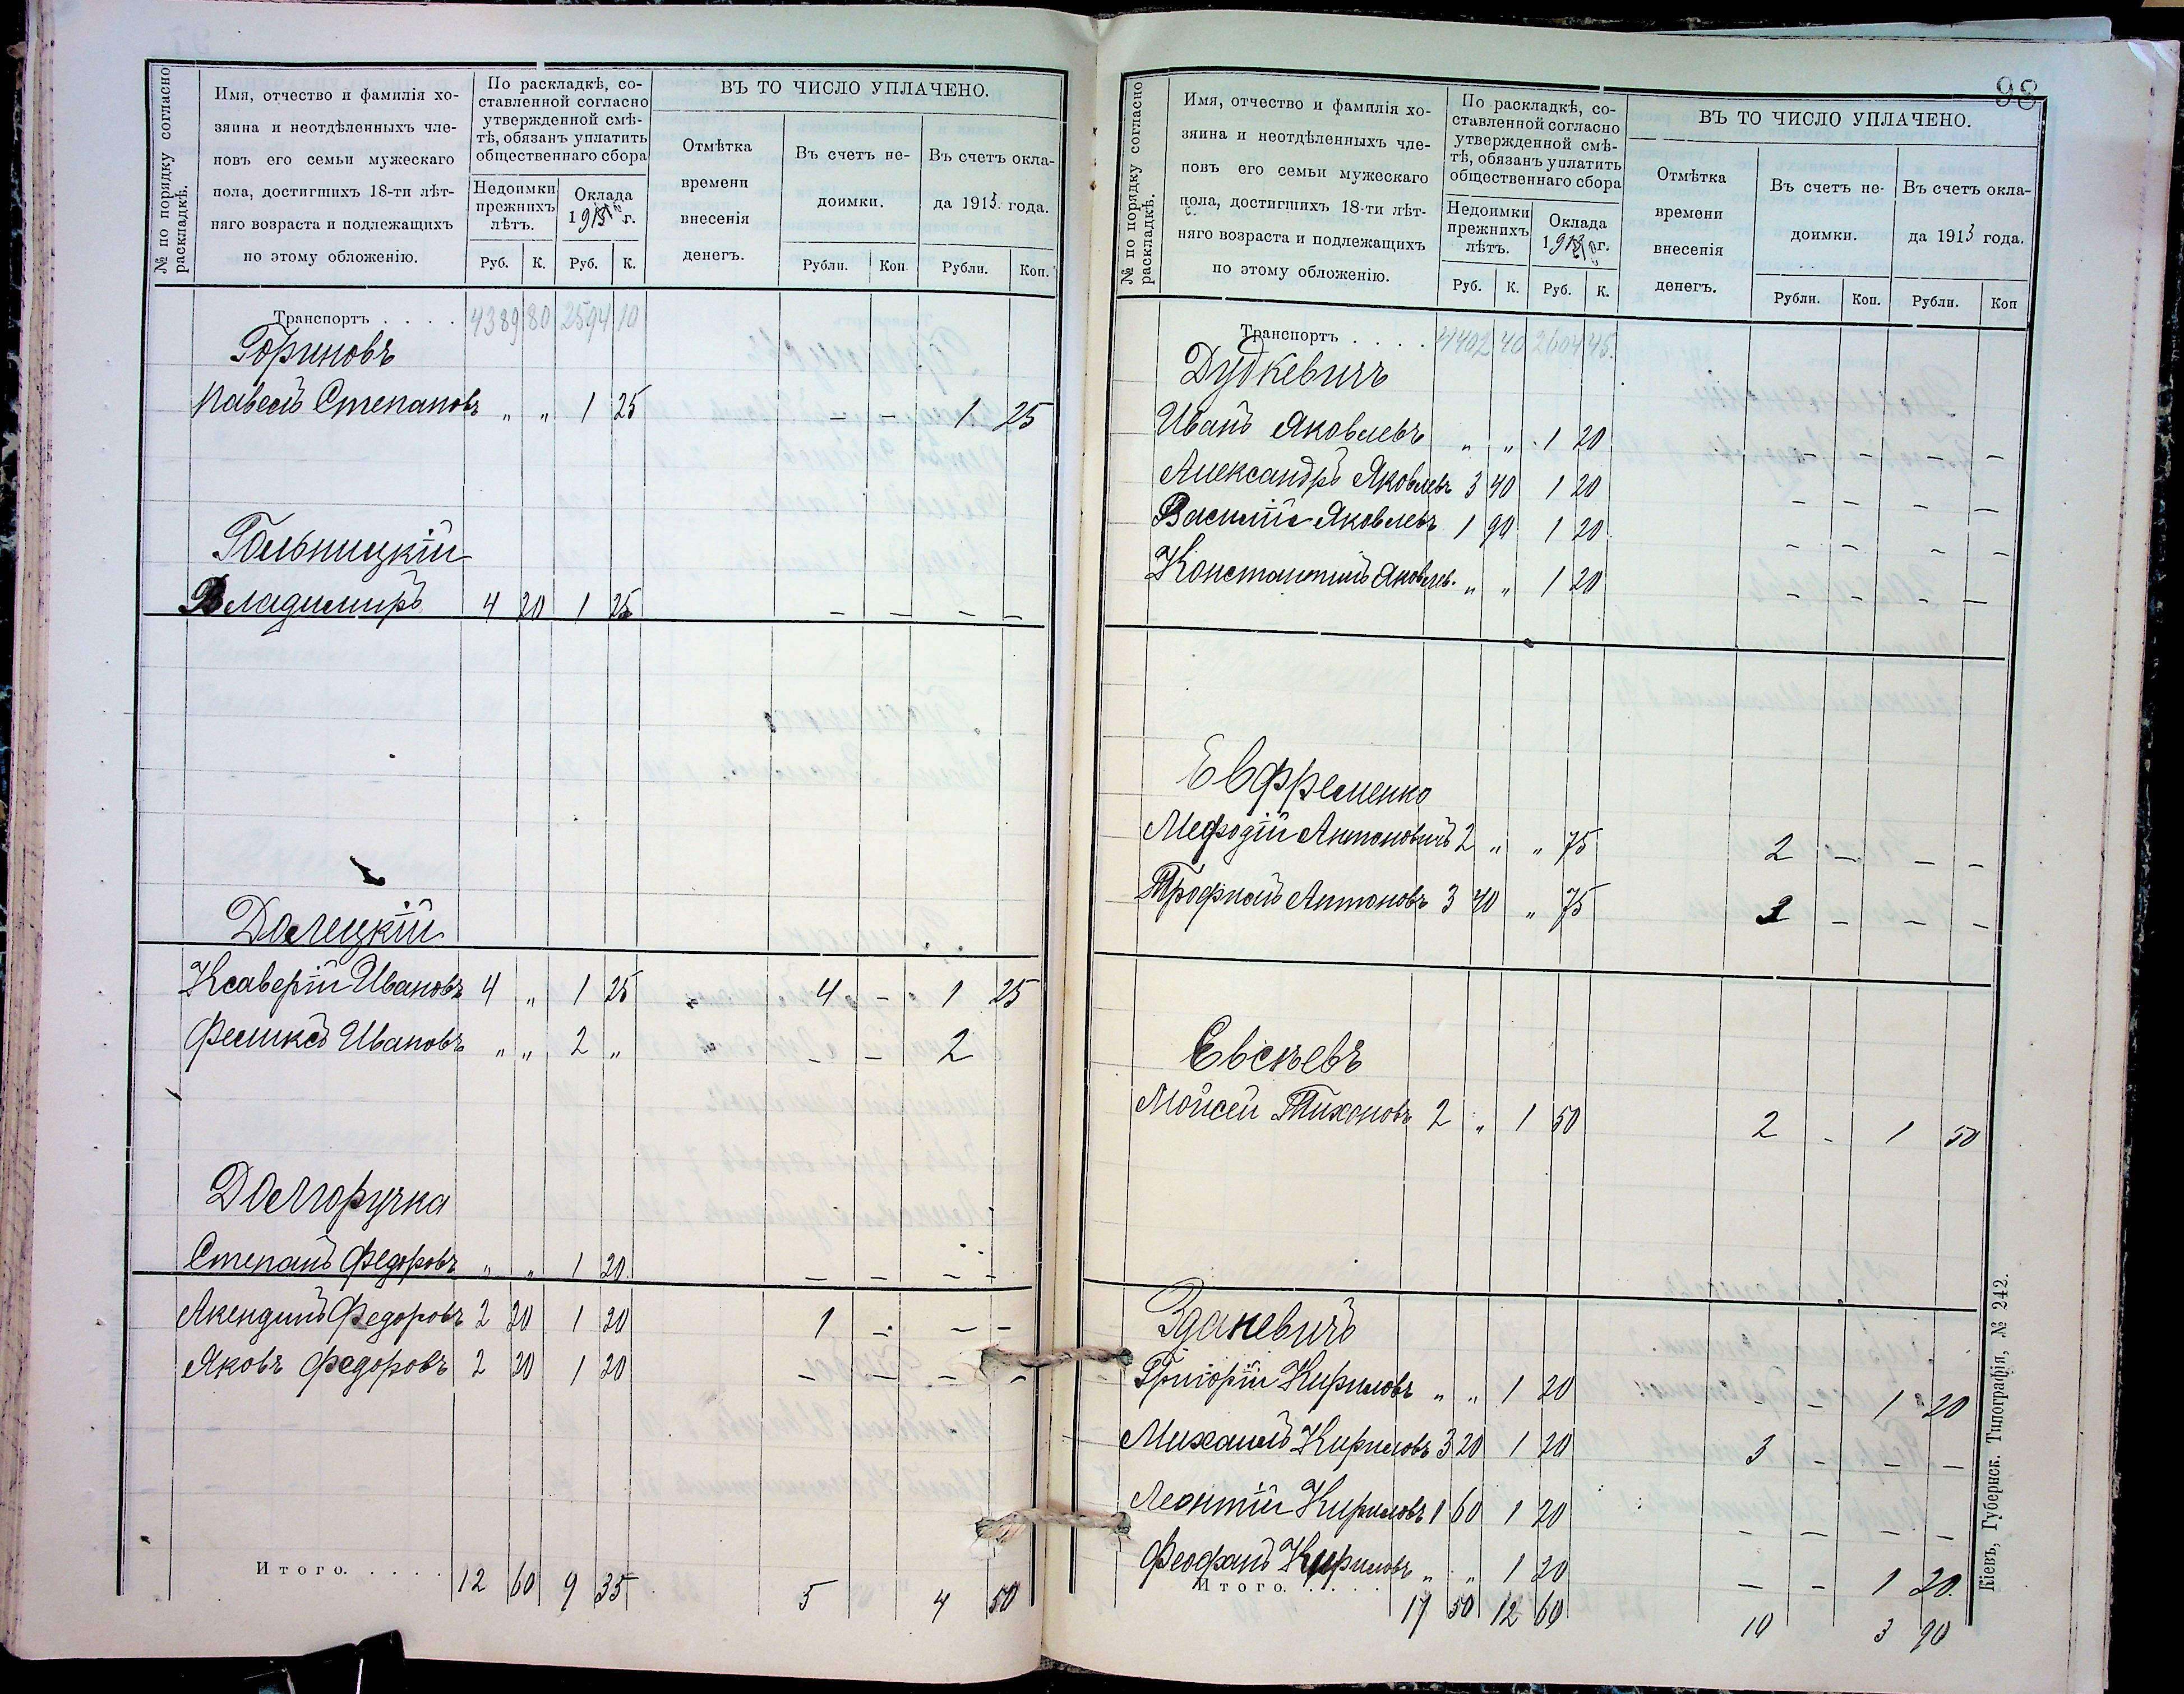 98
№ по порядку согласно раскладкѣ.
Имя, отчество и фамилія хо-
зяина и неотдѣленныхъ чле-
новъ его семьи мужескаго
пола, достигшихъ 18-ти лѣт-
няго возраста и подлежащихъ
по этому обложенію.
По раскладкѣ, со-
ставленной согласно
утвержденной смѣ-
тѣ, обязанъ уплатить
общественнаго сбора
Недоимки
прежнихъ
лѣтъ.
Оклада
191 г.
Руб. К. Руб. К.
ВЪ ТО ЧИСЛО УПЛАЧЕНО.
Отмѣтка
времени
внесенія
денегъ.
Въ счетъ не-
доимки.
Въ счетъ окла-
да 1913 года.
Рубли. Коп. Рубли. Коп.
Транспортъ . . . . 4389 80 2594 10
Гориновъ
Павелъ Степановъ " " 1 25 – – 1 25
Гольницкій
Владимиръ 4 20 1 25 – – – –
Долецкій
Ксаверій Ивановъ 4 " 1 25 4 – 1 25
Феликсъ Ивановъ " " 2 " – – 2
Долгоручка
Степанъ Федоровъ " " 1 20 – – – –
Акендинъ Федоровъ 2 20 1 20 1 – – –
Яковъ Федоровъ 2 20 1 20 – – – –
Итого. . . . . 12 60 9 35 5 4 50
№ по порядку согласно раскладкѣ.
Имя, отчество и фамилія хо-
зяина и неотдѣленныхъ чле-
новъ его семьи мужескаго
пола, достигшихъ 18-ти лѣт-
няго возраста и подлежащихъ
по этому обложенію.
По раскладкѣ, со-
ставленной согласно
утвержденной смѣ-
тѣ, обязанъ уплатить
общественнаго сбора
Недоимки
прежнихъ
лѣтъ.
Оклада
191 г.
Руб. К. Руб. К.
ВЪ ТО ЧИСЛО УПЛАЧЕНО.
Отмѣтка
времени
внесенія
денегъ.
Въ счетъ не-
доимки.
Въ счетъ окла-
да 1913 года.
Рубли. Коп. Рубли. Коп
Транспортъ . . . . 4402 40 2604 45.
Дудкевичъ
Иванъ Яковлевъ " " 1 20 – – – –
Александръ Яковлевъ 3 40 1 20 – – – –
Василій Яковлевъ 1 90 1 20 – – – –
Константинъ Яковлев. " " 1 20 – – – –
Евфременко
Мефодій Антоновичъ 2 " " 75 2 – – –
Трофимъ Антоновъ 3 40 " 75 3 – – –
Евсѣевъ
Мойсей Тихоновъ 2 " 1 50 2 – 1 50
Зданевичъ
Григорій Кириловъ " " 1 20 – – 1 20
Михаилъ Кириловъ 3 20 1 20 3 – – –
Леонтій Кириловъ 1 60 1 20 – – – –
Феофанъ Кириловъ " " 1 20 – – 1 20.
Итого. . . . 17 50 12 60 10 3 90
Кіевъ, Губернск. Типографія, № 242.